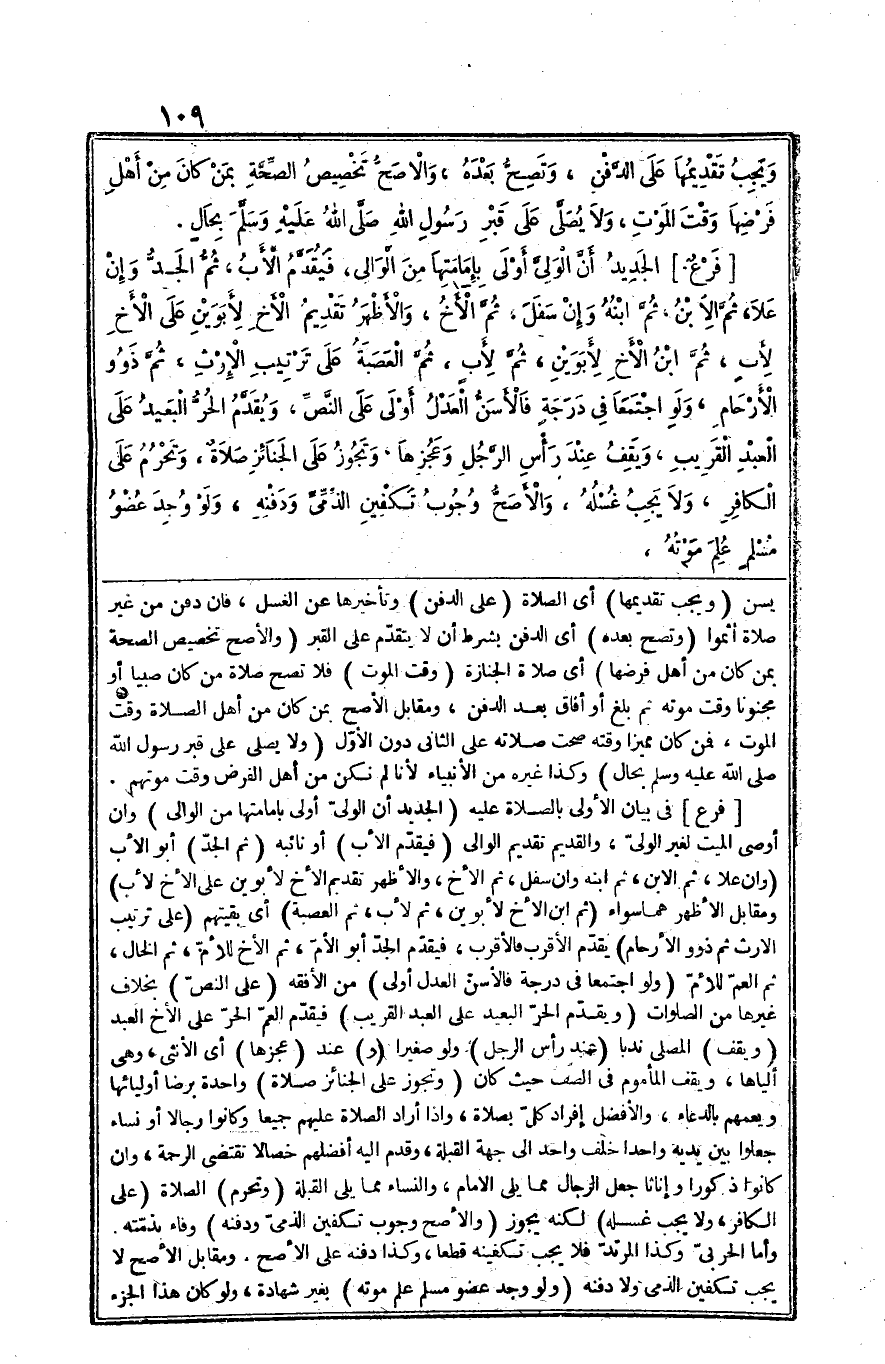 ١٠٩
وَيَجِبُ تَقْدِيمُهَا عَلَى الدَّفْنِ ، وَتَصِحُّ بَعْدَهُ ، وَالْاصَحُّ تَخْصِيصُ الصِّحَّةِ بِمَنْ كانَ مِنْ أَهْلِ
فَرْضِهَا وَقْتَ المَوْتِ ، وَلاَ يُصَلَّى عَلَى قَبْرِ رَسُولِ اللهِ صَلَّى اللهُ عَلَيْهِ وَسَلَّمَ بِحَالٍ .
[ فَرْعٌ ] الجَدِيدُ أَنَّ الْوَلِيَّ أَوْلَى بِإِمَامَتِهَا مِنَ الْوَالِى ، فَيُقَدَّمُ الْأَبُ ، ثُمَّ الْجَدُّ وَإِنْ
عَلاَ، ثُمَّ الِابْنُ ، ثُمَّ ابْنُهُ وَإِنْ سَفَلَ ، ثُمَّ الْأَخُ ، وَالْأَظْهَرُ تَقْدِيمُ الْأَخِ لِأَبَوَيْنِ عَلَى الْأَخِ
لِأَبٍ ، ثُمَّ ابْنُ الْأَخِ لِأَبَوَيْنِ ، ثُمَّ لِأَبٍ ، ثُمَّ الْعَصَبَةُ عَلَى تَرْتِيبِ الْإِرْثِ ، ثُمَّ ذَوُو
الْأَرْحَامِ ، وَلَوِ اجْتَمَعَا فِى دَرَجَةٍ فَالْأَسَنُّ الْعَدْلُ أَوْلَى عَلَى النَّصِّ ، وَيُقَدَّمُ الحُرُّ الْبَعِيدُ عَلَى
الْعَبْدِ الْقَرِيبِ ، وَيَقِفُ عِنْدَ رَأْسِ الرَّجُلِ وَعَجُزِهَا ، وَتَجُوزُ عَلَى الجَنَائِزِ صَلاَةٌ ، وَتَحْرُمُ عَلَى
الْكافِرِ ، وَلاَ يَجِبُ غُسْلُهُ ، وَالْأَصَحُّ وُجُوبُ تَكْفِينِ الذِّمِّىِّ وَدَفْنِهِ ، وَلَوْ وُجِدَ عُضْوُ
مُسْلِمٍ عُلِمَ مَوْتُهُ ،
يسن ( ويجب تقديمها ) أى الصلاة ( على الدفن ) وتأخيرها عن الغسل ، فان دفن من غير
صلاة أثموا ( وتصح بعده ) أى الدفن بشرط أن لا يتقدّم على القبر ( والأصح تخصيص الصحة
بمن كان من أهل فرضها ) أى صلاة الجنازة ( وقت الموت ) فلا تصح صلاة من كان صبيا أو
مجنونا وقت موته ثم بلغ أو أفاق بعد الدفن ، ومقابل الأصح بمن كان من أهل الصلاة وقت
الموت ، فمن كان مميزا وقته صحت صلاته على الثانى دون الأوّل ( ولا يصلى على قبر رسول الله
صلى الله عليه وسلم بحال ) وكذا غيره من الأنبياء لأنا لم نكن من أهل الفرض وقت موتهم .
[ فرع ] فى بيان الأولى بالصلاة عليه ( الجديد أن الولىّ أولى بامامتها من الوالى ) وان
أوصى الميت لغير الولىّ ، والقديم تقديم الوالى ( فيقدّم الأب ) أو نائبه ( ثم الجدّ ) أبو الأب
(وان علا ، ثم الابن ، ثم ابنه وان سفل ، ثم الأخ ، والأظهر تقديم الأخ لأبوين على الأخ لأب)
ومقابل الأظهر هما سواء (ثم ابن الأخ لأبوين ، ثم لأب ، ثم العصبة) أى بقيتهم (على ترتيب
الارث ثم ذوو الأرحام) يقدّم الأقرب فالأقرب ، فيقدّم الجدّ أبو الأمّ ، ثم الأخ للأمّ ، ثم الخال ،
ثم العمّ للأمّ ( ولو اجتمعا فى درجة فالأسنّ العدل أولى ) من الأفقه ( على النصّ ) بخلاف
غيرها من الصلوات ( ويقدّم الحرّ البعيد على العبد القريب ) فيقدّم العمّ الحرّ على الأخ العبد
( ويقف ) المصلى ندبا (عند رأس الرجل ) ولو صغيرا (و) عند ( عجزها ) أى الأنثى ، وهى
ألياها ، ويقف المأموم فى الصف حيث كان ( وتجوز على الجنائز صلاة ) واحدة برضا أوليائها
ويعمهم بالدعاء ، والأفضل إفراد كلّ بصلاة ، واذا أراد الصلاة عليهم جميعا وكانوا رجالا أو نساء
جعلوا بين يديه واحدا خلف واحد الى جهة القبلة ، وقدم اليه أفضلهم خصالا تقتضى الرحمة ، وان
كانوا ذكورا وإناثا جعل الرجال مما يلى الامام ، والنساء مما يلى القبلة ( وتحرم ) الصلاة (على
الكافر ، ولا يجب غسله) لكنه يجوز ( والأصح وجوب تكفين الذمىّ ودفنه ) وفاء بذمّته .
وأما الحربىّ وكذا المرتدّ فلا يجب تكفينه قطعا ، وكذا دفنه على الأصح . ومقابل الأصح لا
يجب تكفين الذمى ولا دفنه ( ولو وجد عضو مسلم علم موته ) بغير شهادة ، ولو كان هذا الجزء